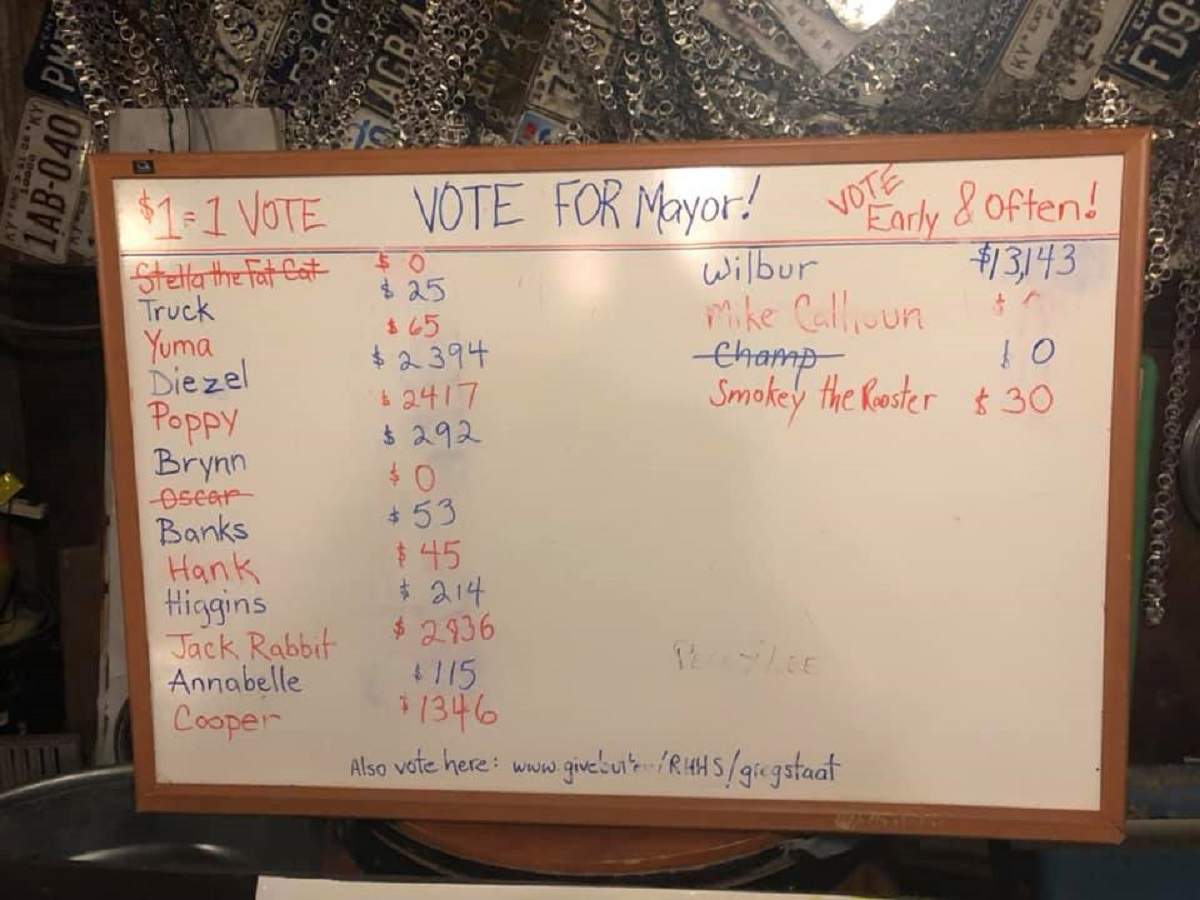 1AB-040
FD9
$1 = 1 VOTE
VOTE FOR Mayor!
VOTE Early & Often!
Stella the Fat Cat $ 0
Truck $ 25
Yuma $ 65
Diezel $ 2394
Poppy $ 2417
Brynn $ 292
Oscar $ 0
Banks $ 53
Hank $ 45
Higgins $ 214
Jack Rabbit $ 2836
Annabelle $ 115
Cooper $ 1346
Wilbur $13,143
Mike Calhoun $
Champ $ 0
Smokey the Rooster $ 30
Also vote here: /RHHS/gregstaat